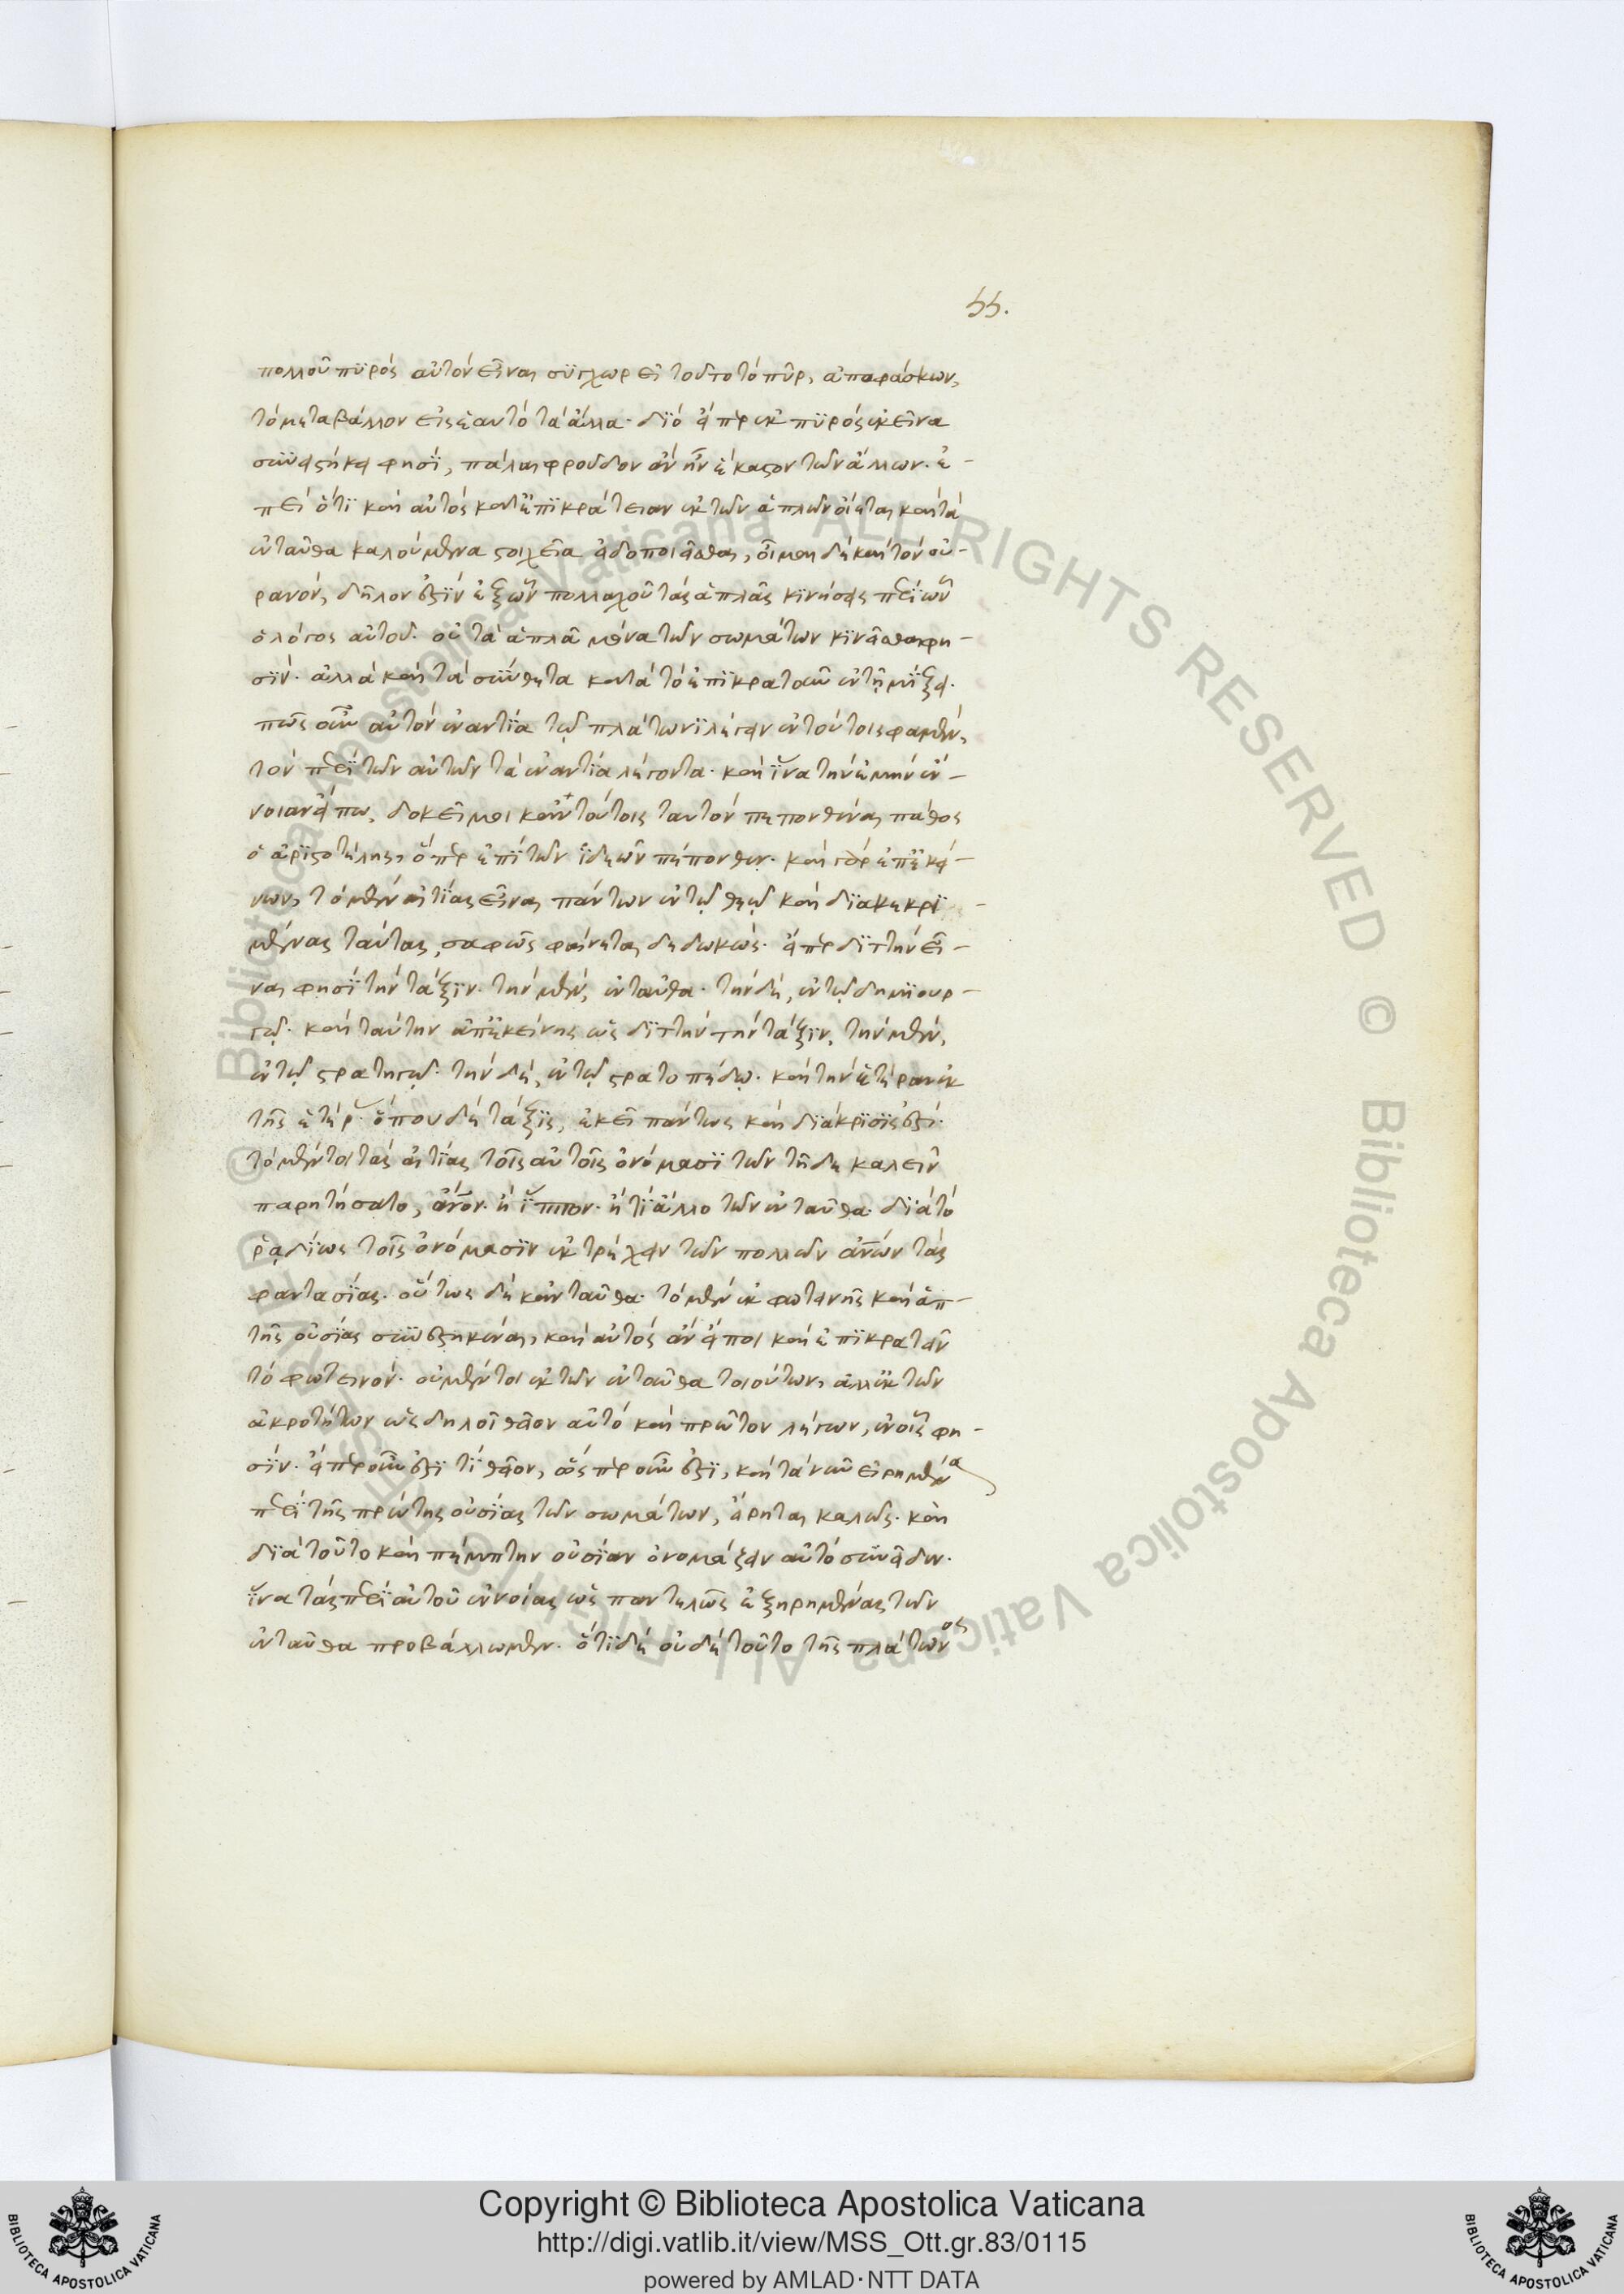 55.
πολλοῦ πυρὸς αὐτὸν εἶναι συγχωρεῖ τοῦτο τὸ πῦρ, ἀποφάσκων,
τὸ μεταβάλλον εἰς ἑαυτὸ τὰ ἄλλα. διὸ εἴπερ ἐκ πυρὸς ἐκεῖνα
συνειστήκει φησὶ, πάλαι φροῦδον ἂν ἦν ἕκαστον τῶν ἄλλων. ἐ-
πεὶ ὅτι καὶ αὐτὸς κατ' ἐπικράτειαν ἐκ τῶν ἁπλῶν οἴεται καὶ τὰ
ἐνταῦθα καλούμενα στοιχεῖα εἰδοποιεῖσθαι, οἶμαι δὲ καὶ τὸν οὐ-
ρανὸν, δῆλόν ἐστιν ἐξ ὧν πολλαχοῦ τὰς ἁπλᾶς κινήσεις περὶ ὧν
ὁ λόγος αὐτοῦ. οὐ τὰ ἁπλᾶ μόνα τῶν σωμάτων κινεῖσθαι φη-
σὶν. ἀλλὰ καὶ τὰ σύνθετα κατὰ τὸ ἐπικρατοῦν ἐν τῇ μίξει.
πῶς οὖν αὐτὸν ἐναντία τῷ πλάτωνι λέγειν ἐν τούτοις φαμὲν,
τὸν περὶ τῶν αὐτῶν τὰ ἐναντία λέγοντα. καὶ ἵνα τὴν ἐμὴν ἔν-
νοιαν εἴπω, δοκεῖ μοι κἂν τούτοις ταυτὸν πεπονθέναι πάθος
ὁ ἀριστοτέλης, ὅπερ ἐπὶ τῶν ἰδεῶν πέπονθεν. καὶ γὰρ ἐπ' ἐκεί-
νων, τὸ μὲν αἰτίας εἶναι πάντων ἐν τῷ θεῷ καὶ διακεκρι-
μένας ταύτας, σαφῶς φαίνεται δεδωκώς. εἴπερ διττὴν εἶ-
ναι φησὶ τὴν τάξιν. τὴν μὲν, ἐνταῦθα. τὴν δὲ, ἐν τῷ δημιουρ-
γῷ. καὶ ταύτην ἀπ' ἐκείνης ὡς διττὴν τὴν τάξιν, τὴν μὲν,
ἐν τῷ στρατηγῷ. τὴν δὲ, ἐν τῷ στρατοπέδῳ. καὶ τὴν ἑτέραν ἐκ
τῆς ἑτέρ. ὅπου δὲ τάξις, ἐκεῖ πάντως καὶ διάκρισίς ἐστι.
τὸ μέντοι τὰς αἰτίας τοῖς αὐτοῖς ὀνόμασι τῶν τῇδε καλεῖν
παρῃτήσατο, ἄνον. ἢ ἵππον. ἤ τι ἄλλο τῶν ἐνταῦθα. διὰ τὸ
ῥᾳδίως τοῖς ὀνόμασιν ἐκτρέχειν τῶν πολλῶν ἀνων τὰς
φαντασίας. οὕτως δὲ κἀνταῦθα. τὸ μὲν ἐκ φωτεινῆς καὶ ἁπ-
τῆς οὐσίας συνεστηκέναι, καὶ αὐτὸς ἂν εἴποι καὶ ἐπικρατεῖν
τὸ φωτεινόν. οὐ μέντοι ἐκ τῶν ἐνταῦθα τοιούτων, ἀλλ' ἐκ τῶν
ἀκροτήτων ὡς δηλοῖ θεῖον αὐτὸ καὶ πρῶτον λέγων, ἐν οἷς φη-
σὶν. εἴπερ οὖν ἐστί τι θεῖον, ὥσπερ οὖν ἐστι, καὶ τὰ νῦν εἰρημένα
περὶ τῆς πρώτης οὐσίας τῶν σωμάτων, εἴρηται καλῶς. καὶ
διὰ τοῦτο καὶ πέμπτην οὐσίαν ὀνομάζειν αὐτὸ συνεῖδεν.
ἵνα τὰς περὶ αὐτοῦ ἐννοίας ὡς παντελῶς ἐξῃρημένας τῶν
ἐνταῦθα προβάλλωμεν. ὅτι δὲ οὐδὲ τοῦτο τῆς πλάτωνος
Copyright © Biblioteca Apostolica Vaticana
http://digi.vatlib.it/view/MSS_Ott.gr.83/0115
powered by AMLAD·NTT DATA